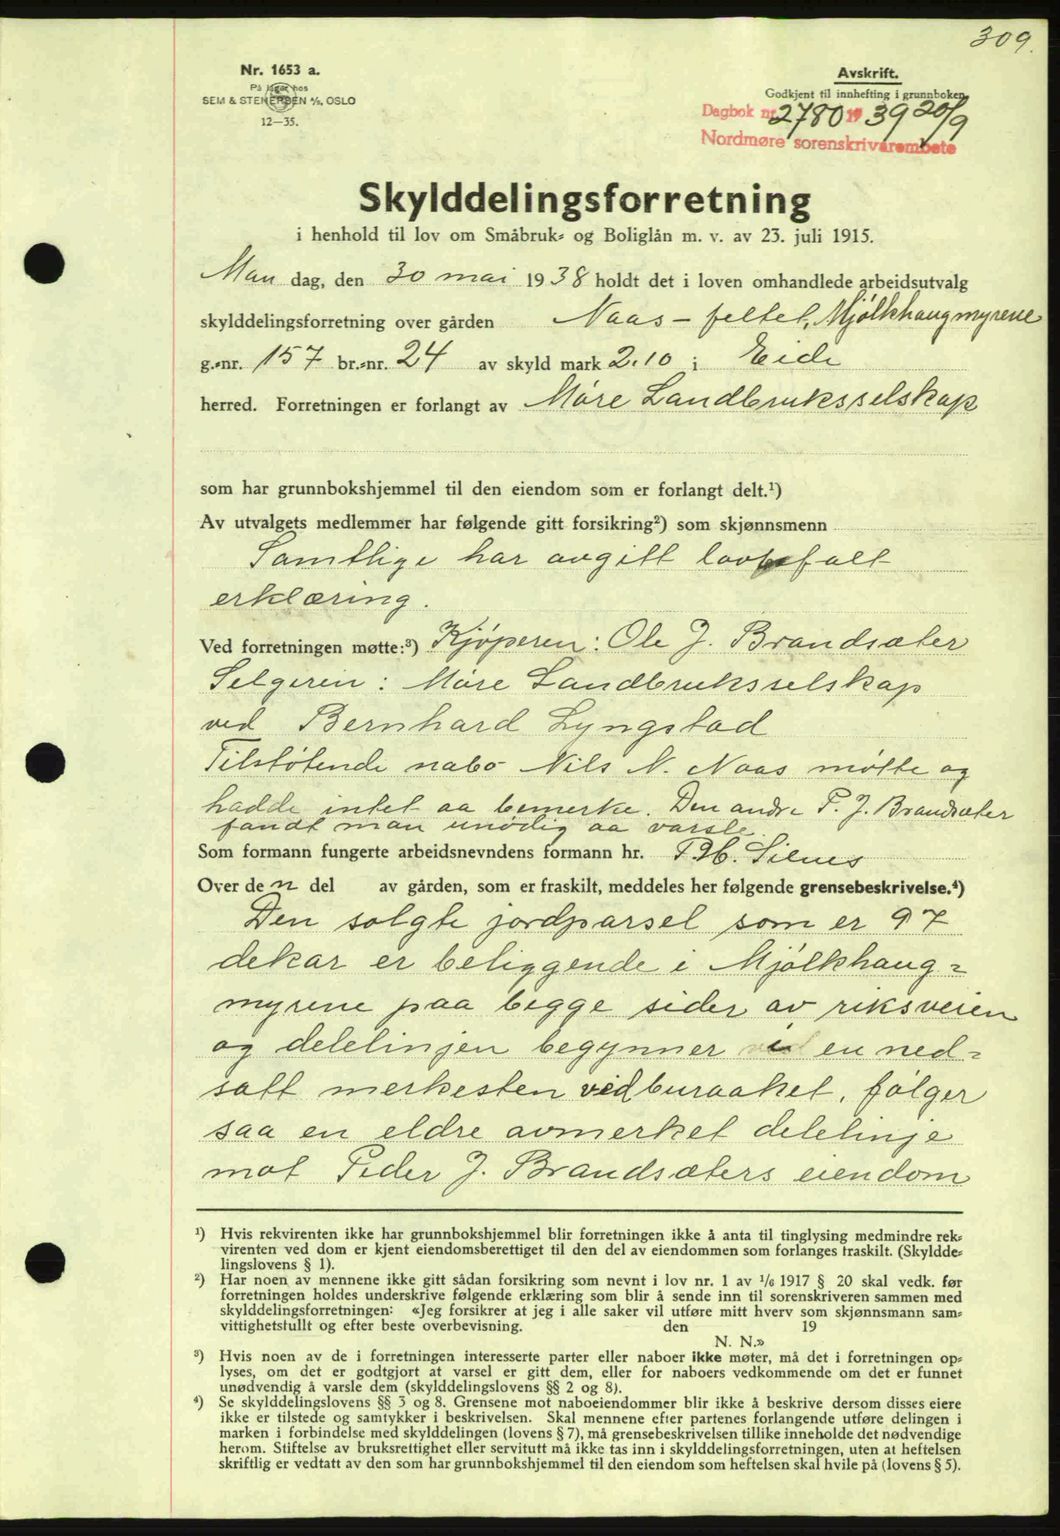 309.
Nr. 1653 a.
På lager hos
SEM & STENERSEN A/S, OSLO
12—35.
Avskrift.
Godkjent til innhefting i grunnboken
Dagbok nr. 2780 19 39 20/9
Nordmøre sorenskriverembete
Skylddelingsforretning
i henhold til lov om Småbruk- og Boliglån m. v. av 23. juli 1915.
Man dag, den 30 mai 1938 holdt det i loven omhandlede arbeidsutvalg
skylddelingsforretning over gården Naas - feltet, Mjølkhaugmyrene
g.-nr. 157 br.-nr. 24 av skyld mark 2.10 i Eide
herred. Forretningen er forlangt av Møre Landbruksselskap
som har grunnbokshjemmel til den eiendom som er forlangt delt.¹)
Av utvalgets medlemmer har følgende gitt forsikring²) som skjønnsmenn
Samtlige har avgitt lovbefalt
erklæring.
Ved forretningen møtte:³) Kjøperen: Ole J. Brandsæter
Selgeren: Møre Landbruksselskap
ved Bernhard Lyngstad
Tilstøtende nabo Nils N. Naas møtte og
hadde intet aa bemerke. Den andre P. J. Brandsæter
fandt man unødig aa varsle.
Som formann fungerte arbeidsnevndens formann hr. P. H. Silnes
Over de n del av gården, som er fraskilt, meddeles her følgende grensebeskrivelse.⁴)
Den solgte jordparsel som er 97
dekar er beliggende i Mjølkhaug=
myrene paa begge sider av riksveien
og delelinjen begynner i en ned=
satt merkesten ved buraaket, følger
saa en eldre avmerket delelinje
mot Peder J. Brandsæters eiendom
¹) Hvis rekvirenten ikke har grunnbokshjemmel blir forretningen ikke å anta til tinglysing medmindre rek-
virenten ved dom er kjent eiendomsberettiget til den del av eiendommen som forlanges fraskilt. (Skyldde-
lingslovens § 1).
²) Har noen av mennene ikke gitt sådan forsikring som nevnt i lov nr. 1 av 1/6 1917 § 20 skal vedk. før
forretningen holdes underskrive følgende erklæring som blir å sende inn til sorenskriveren sammen med
skylddelingsforretningen: «Jeg forsikrer at jeg i alle saker vil utføre mitt hverv som skjønnsmann sam-
vittighetsfullt og efter beste overbevisning. den 19
N. N.»
³) Hvis noen av de i forretningen interesserte parter eller naboer ikke møter, må det i forretningen op-
lyses, om det er godtgjort at varsel er gitt dem, eller for naboers vedkommende om det er funnet
unødvendig å varsle dem (skylddelingslovens §§ 2 og 8).
⁴) Se skylddelingslovens §§ 3 og 8. Grensene mot naboeiendommer blir ikke å beskrive dersom disses eiere
ikke er tilstede og samtykker i beskrivelsen. Skal mennene efter partenes forlangende utføre delingen i
marken i forbindelse med skylddelingen (lovens § 7), må grensebeskrivelsen tillike inneholde det nødvendige
herom. Stiftelse av bruksrettighet eller servitutt må ikke tas inn i skylddelingsforretningen, uten at heftelsen
skriftlig er vedtatt av den som har grunnbokshjemmel til den eiendom som heftelsen skal hvile på (lovens § 5).